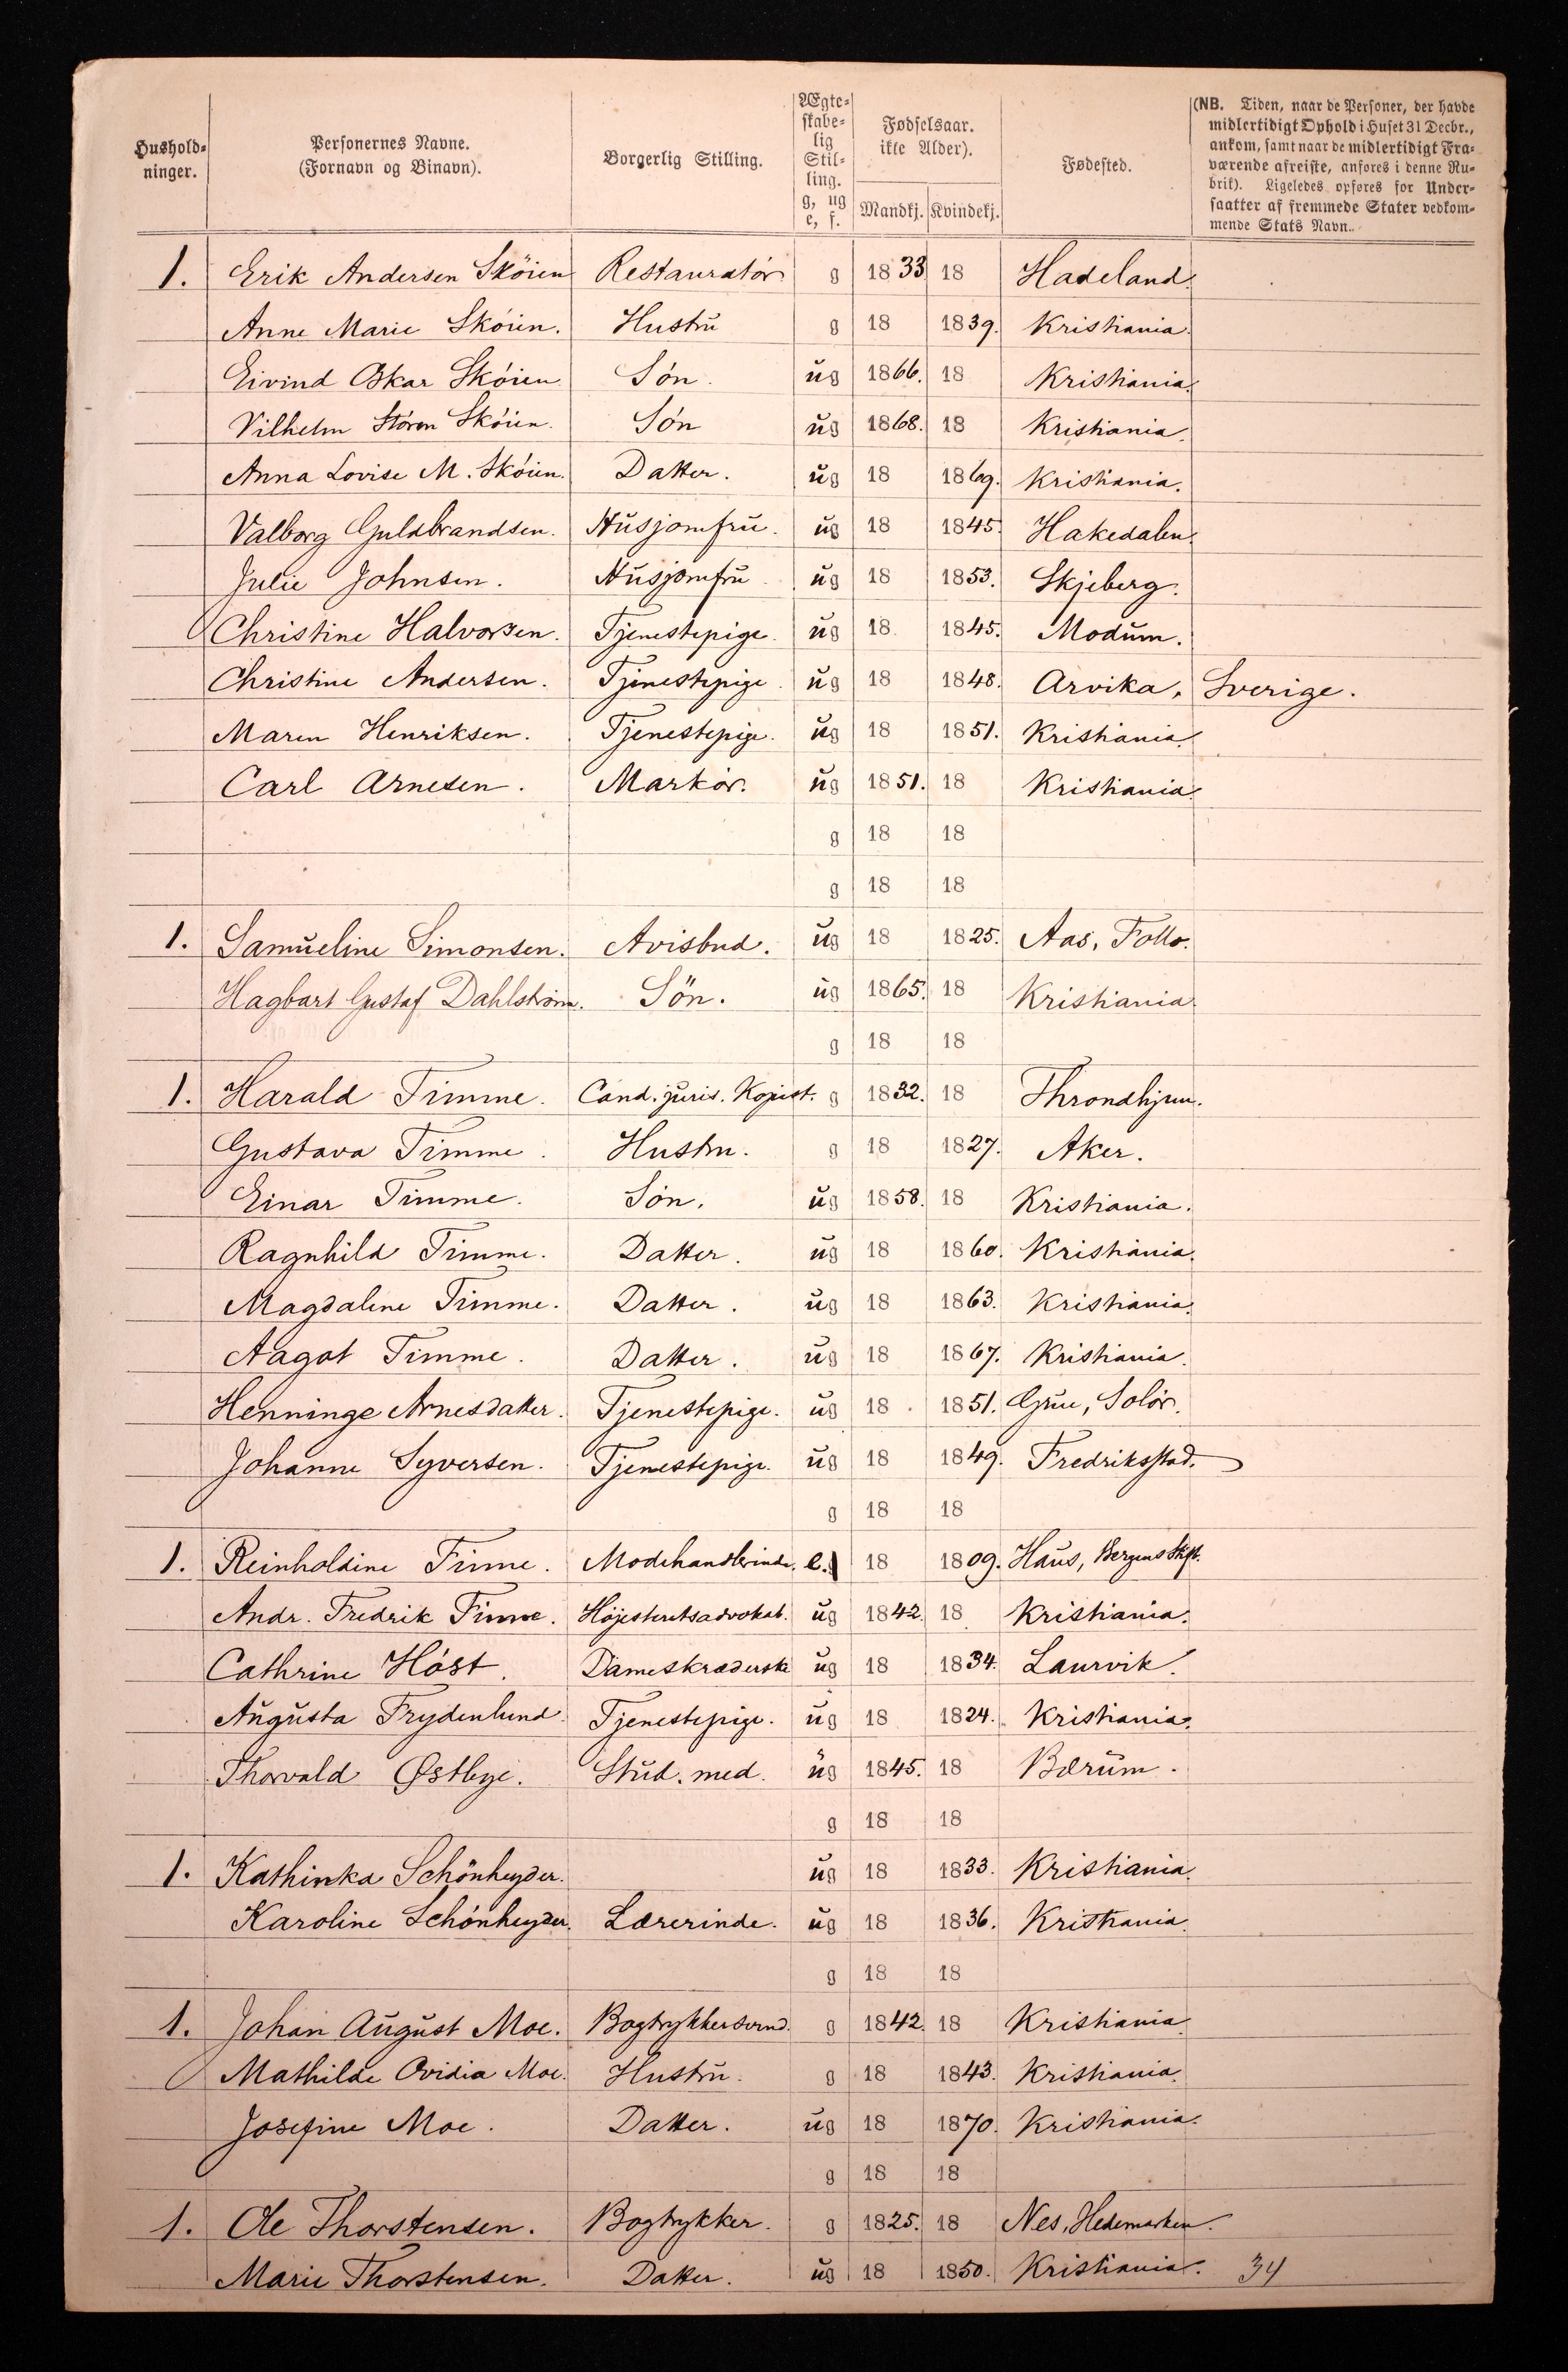 Hushold-
ninger.
Personernes Navne.
(Fornavn og Binavn).
Borgerlig Stilling.
Ægte-
skabe-
lig
Stil-
ling.
g, ug
e, f.
Fødselsaar.
(ikke Alder).
Mandkj. Kvindekj.
Fødested.
(NB. Tiden, naar de Personer, der havde
midlertidigt Ophold i Huset 31 Decbr.,
ankom, samt naar de midlertidigt Fra-
værende afreiste, anføres i denne Ru-
brik). Ligeledes opføres for Under-
saatter af fremmede Stater vedkom-
mende Stats Navn.
1. Erik Andersen Sköien Restauratör g 1833 18 Hadeland.
Anne Marie Skóien. Hustrŭ g 18 1839. Kristiania.
Eivind Oskar Skóien Són. ŭg 1866. 18 Kristiania.
Vilhelm Stóren Skóien. Són ŭg 1868. 18 Kristiania.
Anna Lovise M. Skóien. Datter. ŭg 18 1869. Kristiania.
Valborg Guldbrandsen. Hŭsjomfrŭ. ŭg 18 1845. Hakedalen.
Julie Johnsen. Hŭsjomfrŭ. ŭg 18 1853. Skjeberg.
Christine Halvorsen. Tjenestepige. ŭg 18 1845. Modŭm.
Christine Andersen. Tjenestepige. ŭg 18 1848. Arvika, Sverige.
Maren Henriksen. Tjenestepige. ŭg 18 1851. Kristiania.
Carl Arnesen. Markór. ŭg 1851. 18 Kristiania.
g 18 18
g 18 18
1. Samŭeline Simonsen. Avisbud. ŭg 18 1825. Aas, Follo.
Hagbart Gustaf Dahlström. Sön. ŭg 1865. 18 Kristiania.
g 18 18
1. Harald Timme. Cand. jŭris. Kopist. g 1832. 18 Throndhjem.
Gustava Timme. Hustru. g 18 1827. Aker.
Einar Timme. Són. ŭg 1858. 18 Kristiania.
Ragnhild Timme. Datter. ŭg 18 1860. Kristiania.
Magdalene Timme. Datter. ŭg 18 1863. Kristiania.
Aagot Timme. Datter. ŭg 18 1867. Kristiania.
Henninge Arnesdatter. Tjenestepige. ŭg 18 1851. Grue, Solór.
Johanne Syversen. Tjenestepige. ŭg 18 1849. Fredriksstad.
g 18 18
1. Reinholdine Finne. Modehandlerinde. e. 18 1809. Haŭs, Bergens Stift.
Andr. Fredrik Finne. Höjesteretsadvokat. ŭg 1842. 18 Kristiania.
Cathrine Hóst. Dameskræderske ŭg 18 1834. Laurvik.
Aŭgŭsta Frydenlund. Tjenestepige. ŭg 18 1824. Kristiania.
Thorvald Østbye. Stŭd. med. ŭg 1845. 18 Bærŭm.
g 18 18
1. Kathinka Schönheyder. ŭg 18 1833. Kristiania.
Karoline Schónheyder. Lærerinde. ŭg 18 1836. Kristiania.
g 18 18
1. Johan Aŭgŭst Moe. Bogtrykkersvend. g 1842. 18 Kristiania.
Mathilde Ovidia Moe. Hustrŭ. g 18 1843. Kristiania.
Josefine Moe. Datter. ŭg 18 1870. Kristiania.
g 18 18
1. Ole Thorstensen. Bogtrykker. g 1825. 18 Nes, Hedemarken.
Marie Thorstensen. Datter. ŭg 18 1850. Kristiania. 34